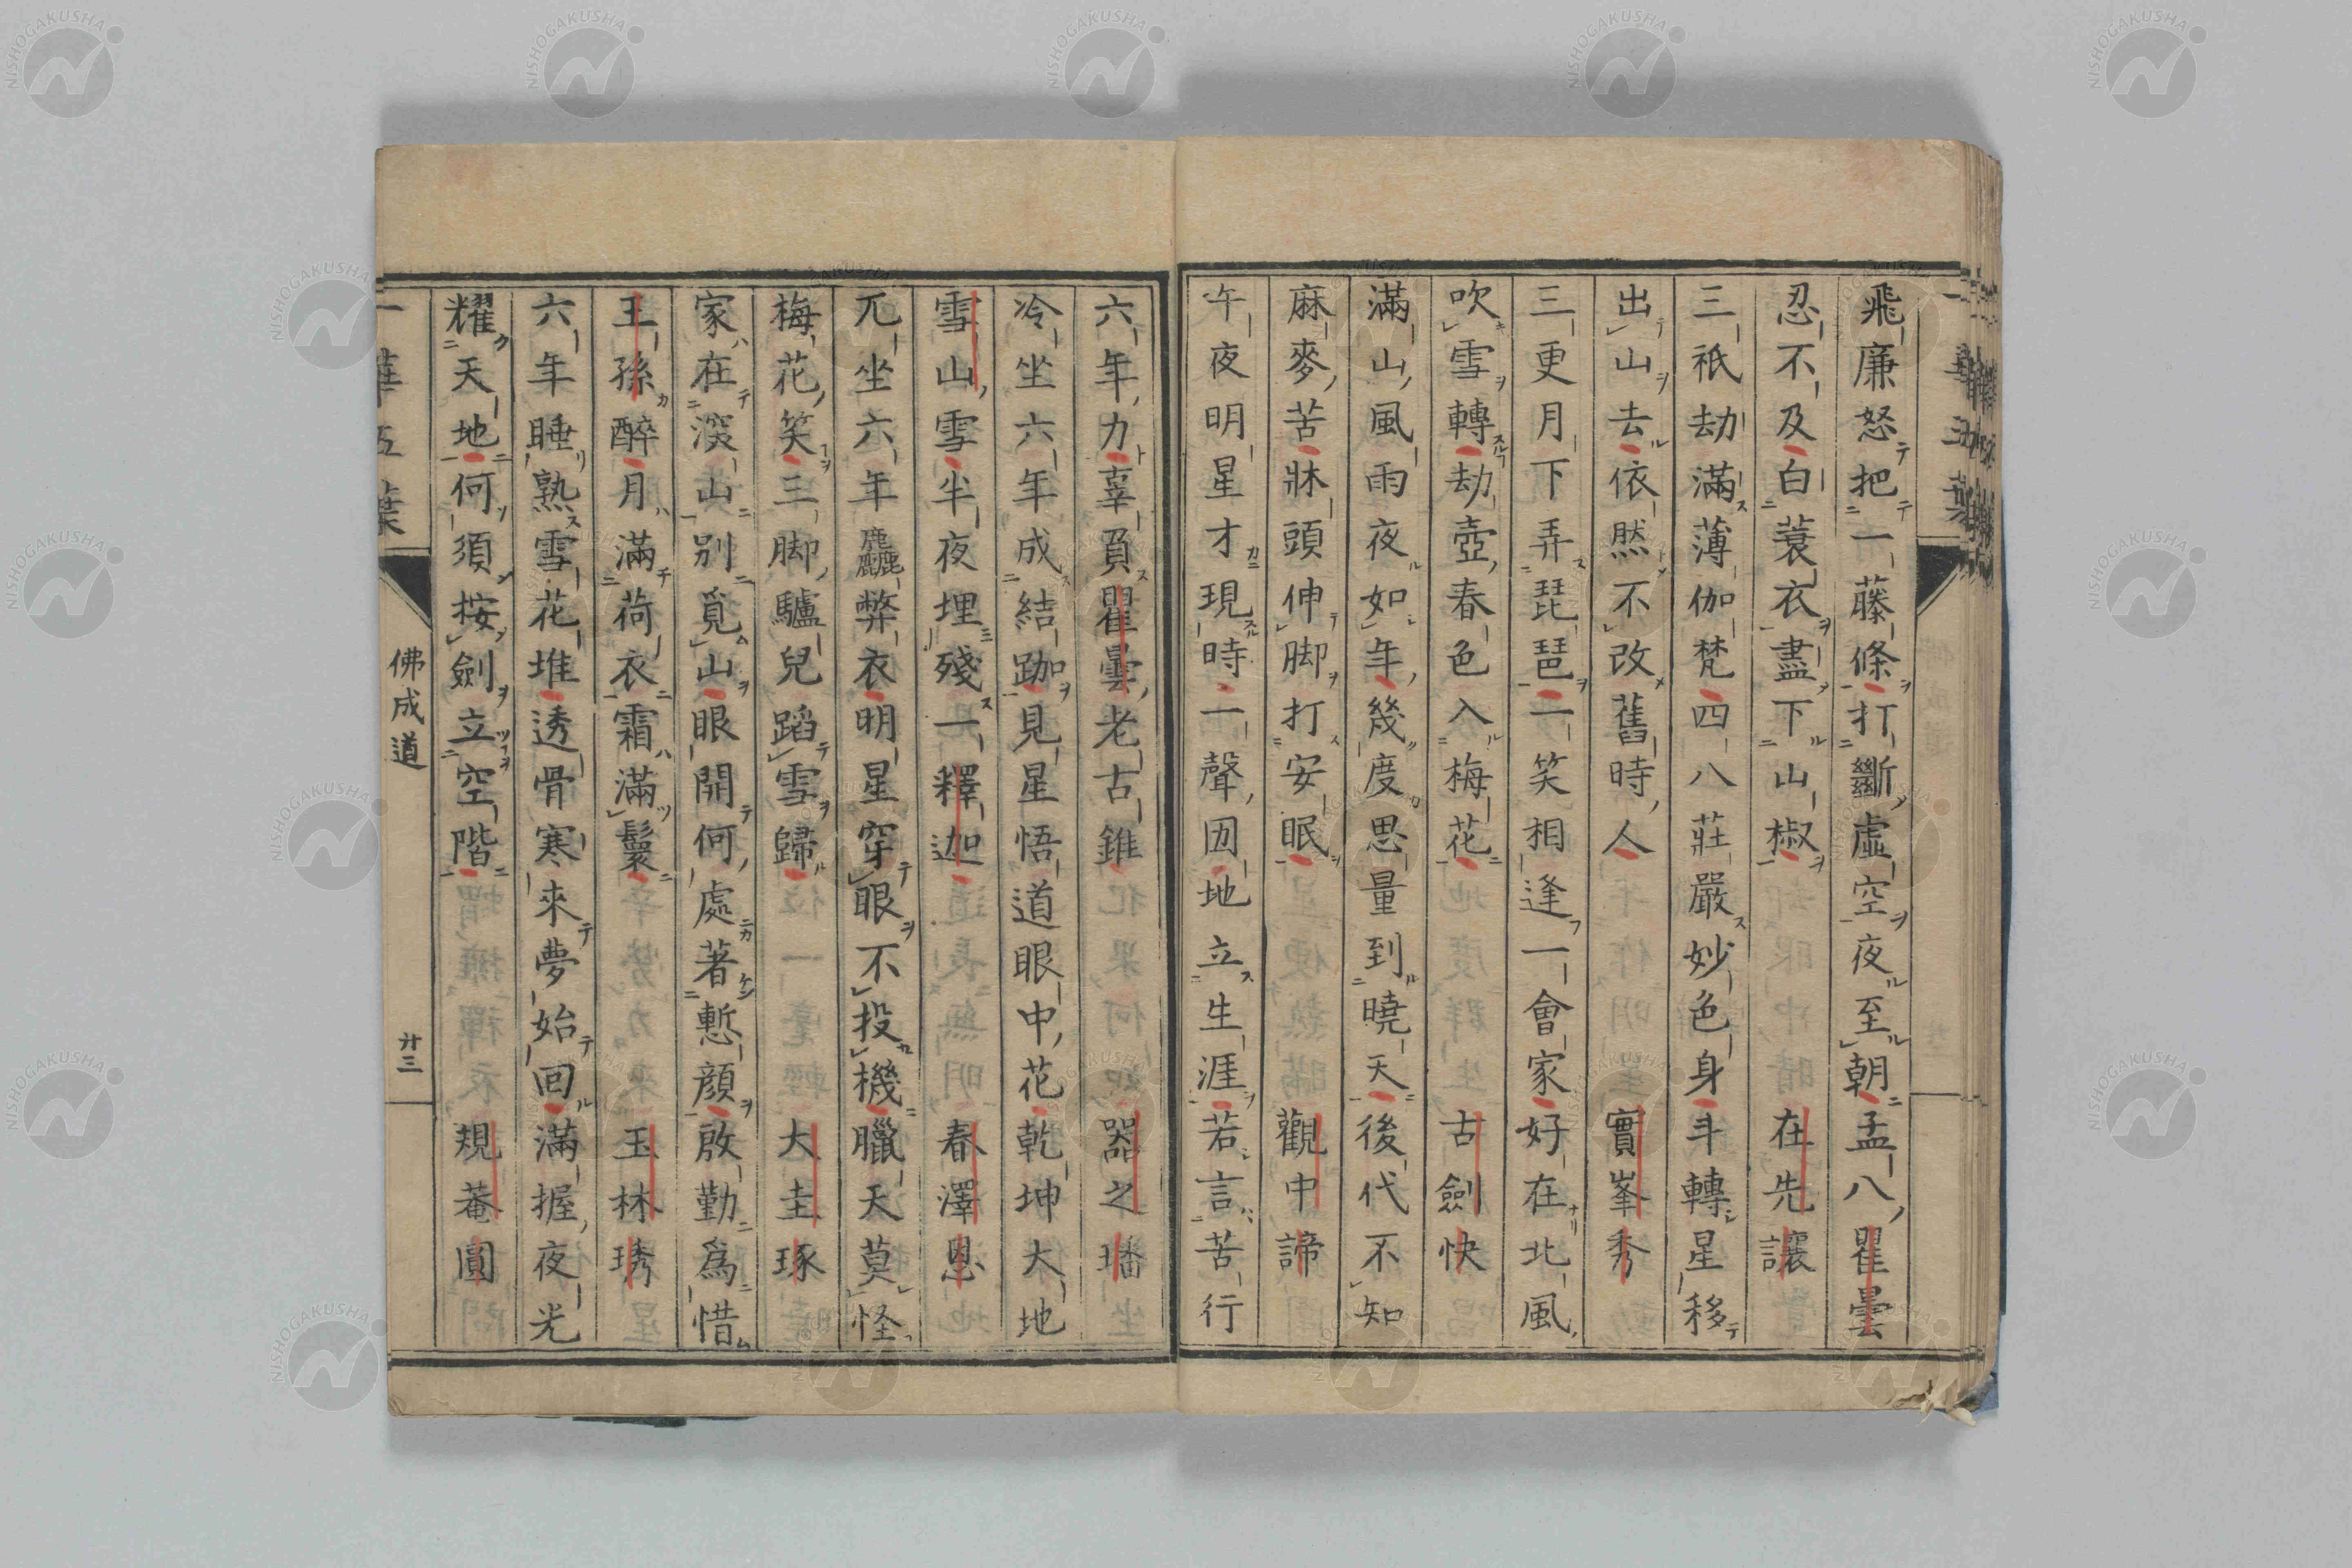 飛廉怒把一藤條打斷虛空夜至朝孟八瞿曇
忍不及白蓑衣盡下山椒在先讓
三祇劫滿薄伽梵四八莊嚴妙色身斗轉星移
出山去依然不改舊時人實峯秀
三更月下弄琵琶一笑相逢一會家好在北風
吹雪轉劫壺春色入梅花古劍快
滿山風雨夜如年幾度思量到曉天後代不知
麻麥苦牀頭伸脚打安眠觀中諦
午夜明星才現時一聲囡地立生涯若言苦行
六年力辜負瞿曇老古錐器之璠
冷坐六年成結跏見星悟道眼中花乾坤大地
雪山雪半夜埋殘一釋迦春澤恩
兀坐六年麤弊衣明星穿眼不投機臘天莫怪
梅花笑三脚驢兒蹈雪歸大圭琢
家在深山別覓山眼開何處著慙顏啟勤為惜
王孫醉月滿荷衣霜滿鬟玉林琇
六年睡熟雪花堆透骨寒來夢始回滿握夜光
耀天地何須按劍立空階規菴圓
一華五葉
佛成道
廿三
NISHOGAKUSHA